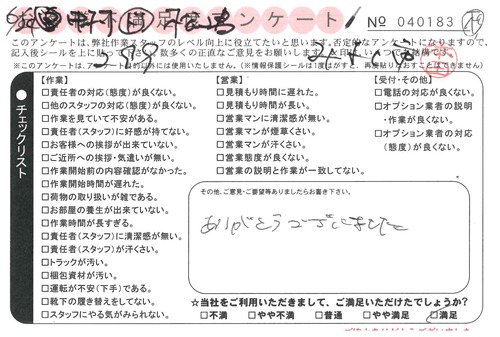 お客様満足度アンケート
No 040183
このアンケートは、弊社作業スタッフのレベル向上に役立てたいと思います。否定的なアンケートになりますので、
記入後シールを上に貼って
いくつでも結構です。
※このアンケートは、
以外には使用いたしません。（※情報保護シールは1度はがすと、再度貼りなおすことはできません）
チェックリスト
【作業】
□責任者の対応（態度）が良くない。
□他のスタッフの対応（態度）が良くない。
□作業を見ていて不安がある。
□責任者（スタッフ）に好感が持てない。
□お客様への挨拶が出来ていない。
□ご近所への挨拶・気遣いが無い。
□作業開始前の内容確認がなかった。
□作業開始時間が遅れた。
□荷物の取り扱いが雑である。
□お部屋の養生が出来ていない。
□作業時間が長すぎる。
□責任者（スタッフ）に清潔感が無い。
□責任者（スタッフ）が汗くさい。
□トラックが汚い。
□梱包資材が汚い。
□運転が不安（下手）である。
□靴下の履き替えをしてない。
□スタッフにやる気がみられない。
【営業】
□見積もり時間に遅れた。
□見積もり時間が長い。
□営業マンに清潔感が無い。
□営業マンが煙草くさい。
□営業マンが汗くさい。
□営業態度が良くない。
□営業の説明と作業が一致してない。
【受付・その他】
□電話の対応が良くない。
□オプション業者の説明
・作業が良くない。
□オプション業者の対応
（態度）が良くない。
その他、ご意見・ご要望等ありましたらお書き下さい。
ありがとうございました
☆当社をご利用いただきまして、ご満足いただけたでしょうか？
□不満 □やや不満 □普通 □やや満足 □満足